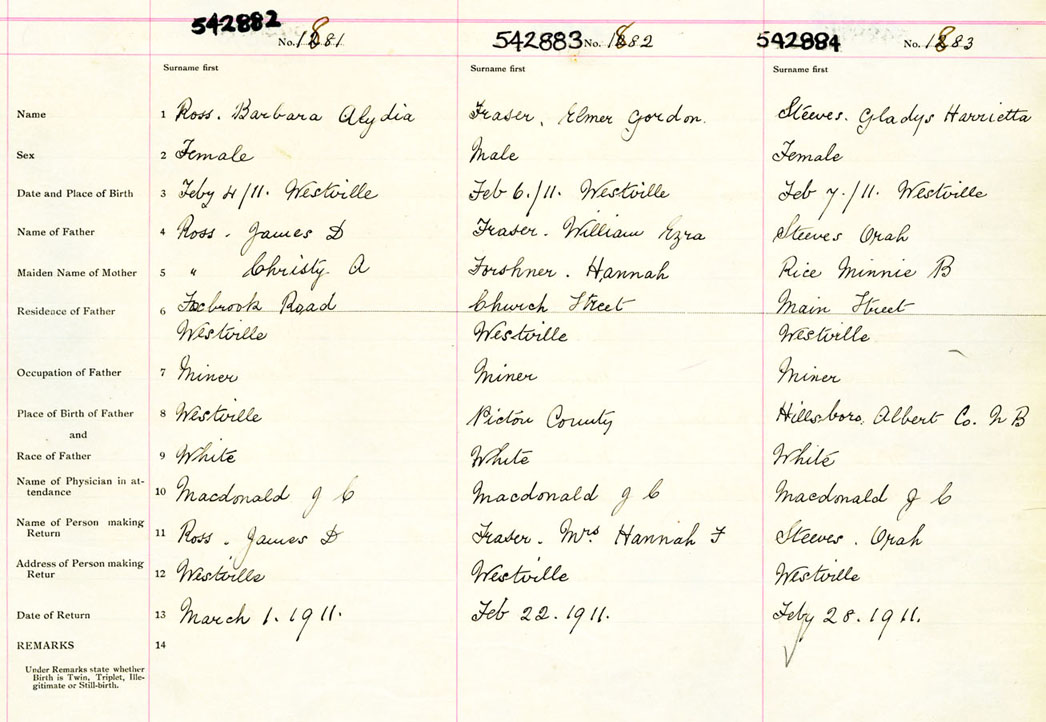 542882 No. 1881 542883 No. 1882 542884 No. 1883
Surname first Surname first Surname first
Name 1 Ross. Barbara Alydia Fraser, Elmer Gordon. Steeves. Gladys Harrietta
Sex 2 Female Male Female
Date and Place of Birth 3 Feby 4/11. Westville Feb 6./11. Westville Feb 7./11. Westville
Name of Father 4 Ross. James D Fraser. William Ezra Steeves Orah
Maiden Name of Mother 5 " Christy. A Forshner. Hannah Rice Minnie B
Residence of Father 6 Foxbrook Road Church Street Main Street
Westville Westville Westville
Occupation of Father 7 Miner Miner Miner
Place of Birth of Father 8 Westville Pictou County Hillsboro, Albert Co. N B
and
Race of Father 9 White White White
Name of Physician in at-
tendance 10 Macdonald J C Macdonald J C Macdonald J C
Name of Person making
Return 11 Ross. James D Fraser. Mrs Hannah F Steeves. Orah
Address of Person making
Retur 12 Westville Westville Westville
Date of Return 13 March 1. 1911. Feb 22. 1911. Feby 28. 1911.
REMARKS 14
Under Remarks state whether
Birth is Twin, Triplet, Ille-
gitimate or Still-birth.